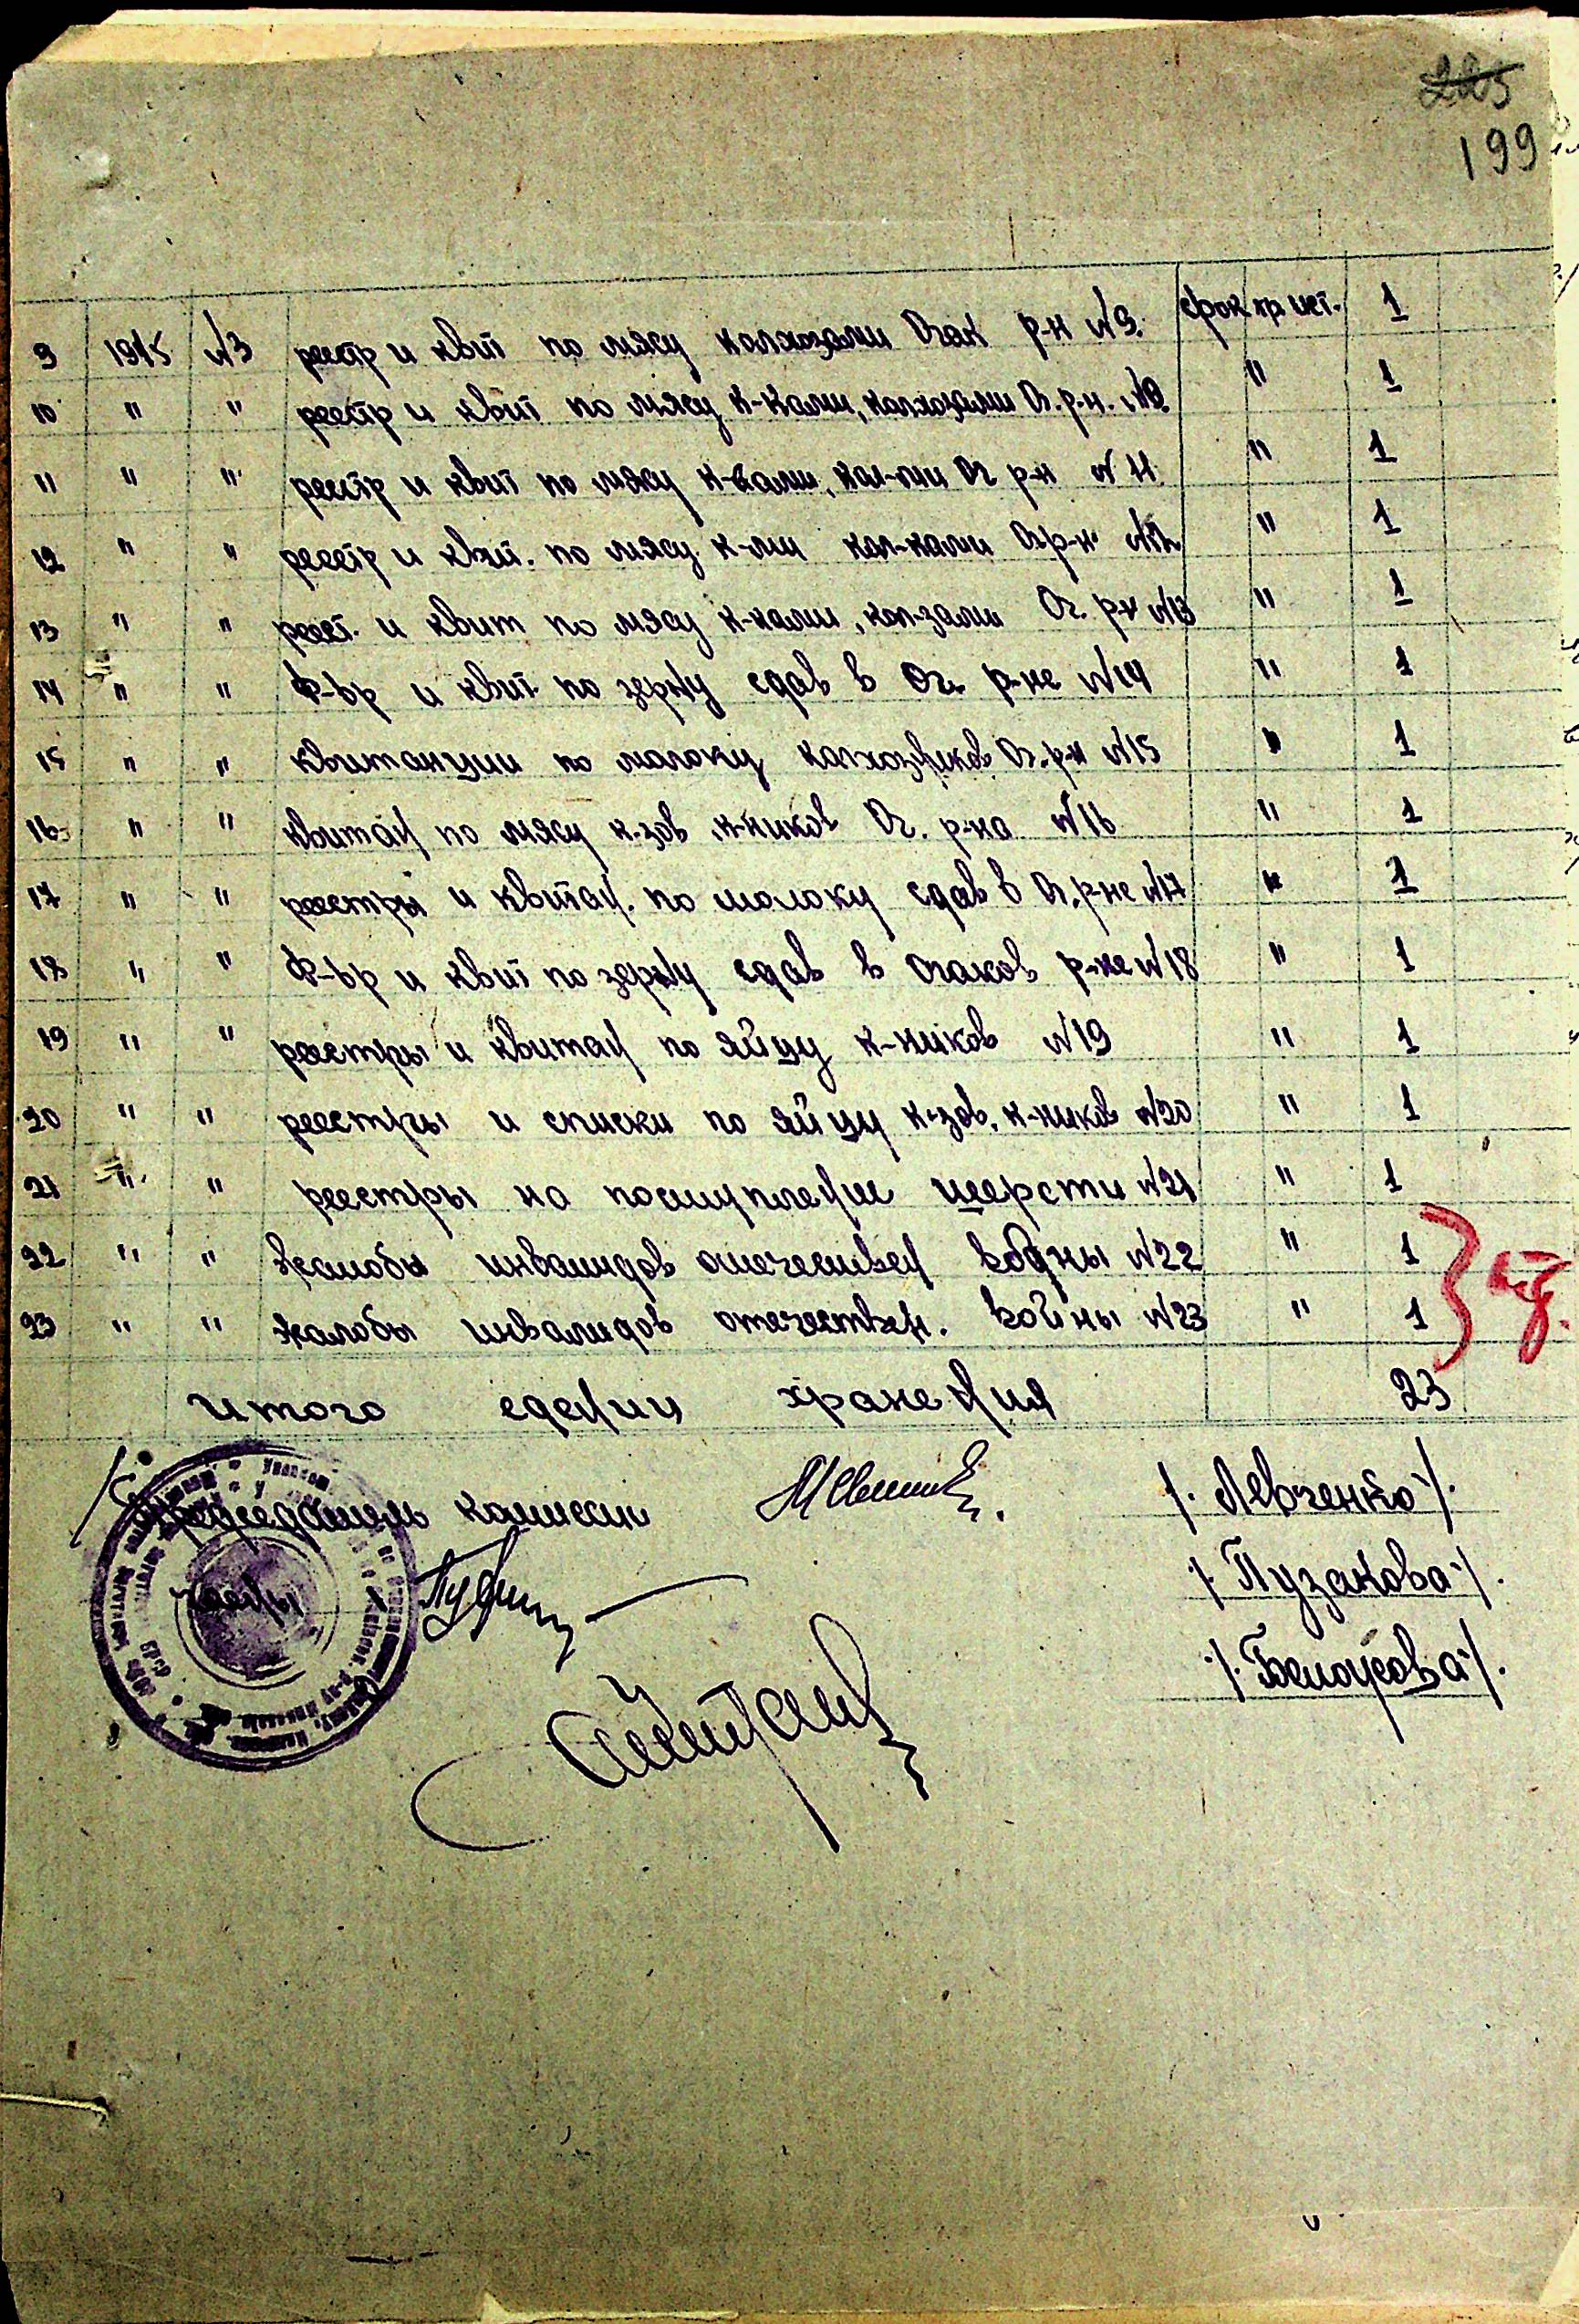 225
199
9 1945 №3 реестр и квит по мясу колхозами Очак р-н №9. срок хр ист. 1
10 " " реестр и квит по мясу к-ками, колхозами Оч. р.н. №9 " 1
11 " " реестр и квит по мясу к-ками, кол-ми Оч р-н №11 " 1
12 " " реестр и квит. по мясу к-ми кол-ками Оч р-н №12 " 1
13 " " реест. и квит по мясу к-ками, кол-зами Оч. р-н №13 " 1
14 " " Ф-ьр и квит по зерну сдав в Оч. р-не №14 " 1
15 " " квитанции по молоку колхозников Оч. р-н №15 " 1
16 " " квитан по мясу к-зов, к-ников Оч. р-на №16 " 1
17 " " реестры и квитан. по молоку сдав в Оч. р-не №17 " 1
18 " " Ф-ьр и квит по зерну сдав в Очаков р-не №18 " 1
19 " " реестры и квитан по яйцу к-ников №19 " 1
20 " " реестры и списки по яйцу к-зов, к-ников №20 " 1
21 " " реестры на поступление шерсти №21 " 1
22 " " жалобы инвалидов отечествен войны №22 " 1
23 " " жалобы инвалидов отечествен. войны №23 " 1
итого единиц хранения 23
Председатель комиссии /. Левченко ./.
члены /. Пузакова ./.
./. Белоусова ./.